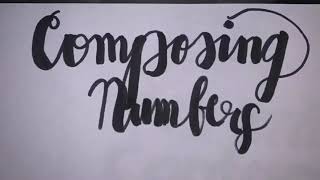 Composing
Numbers